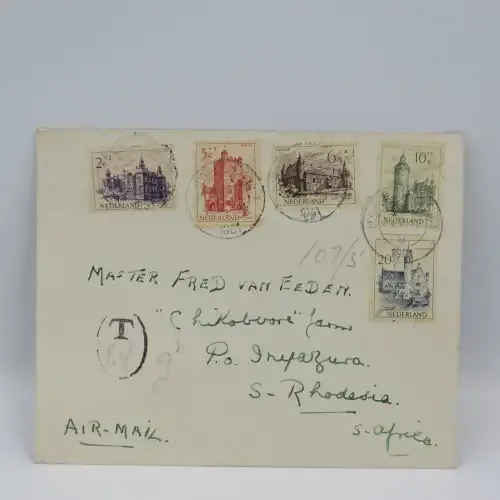 2+2
NEDERLAND
5+3
NEDERLAND
6+4
NEDERLAND
10+5
NEDERLAND
20
NEDERLAND
1951
107/5
MASTER FRED VAN EEDEN.
"Chikobvore" farm
T
P.O. Inyazura.
S-Rhodesia.
AIR-MAIL.
S-Africa.